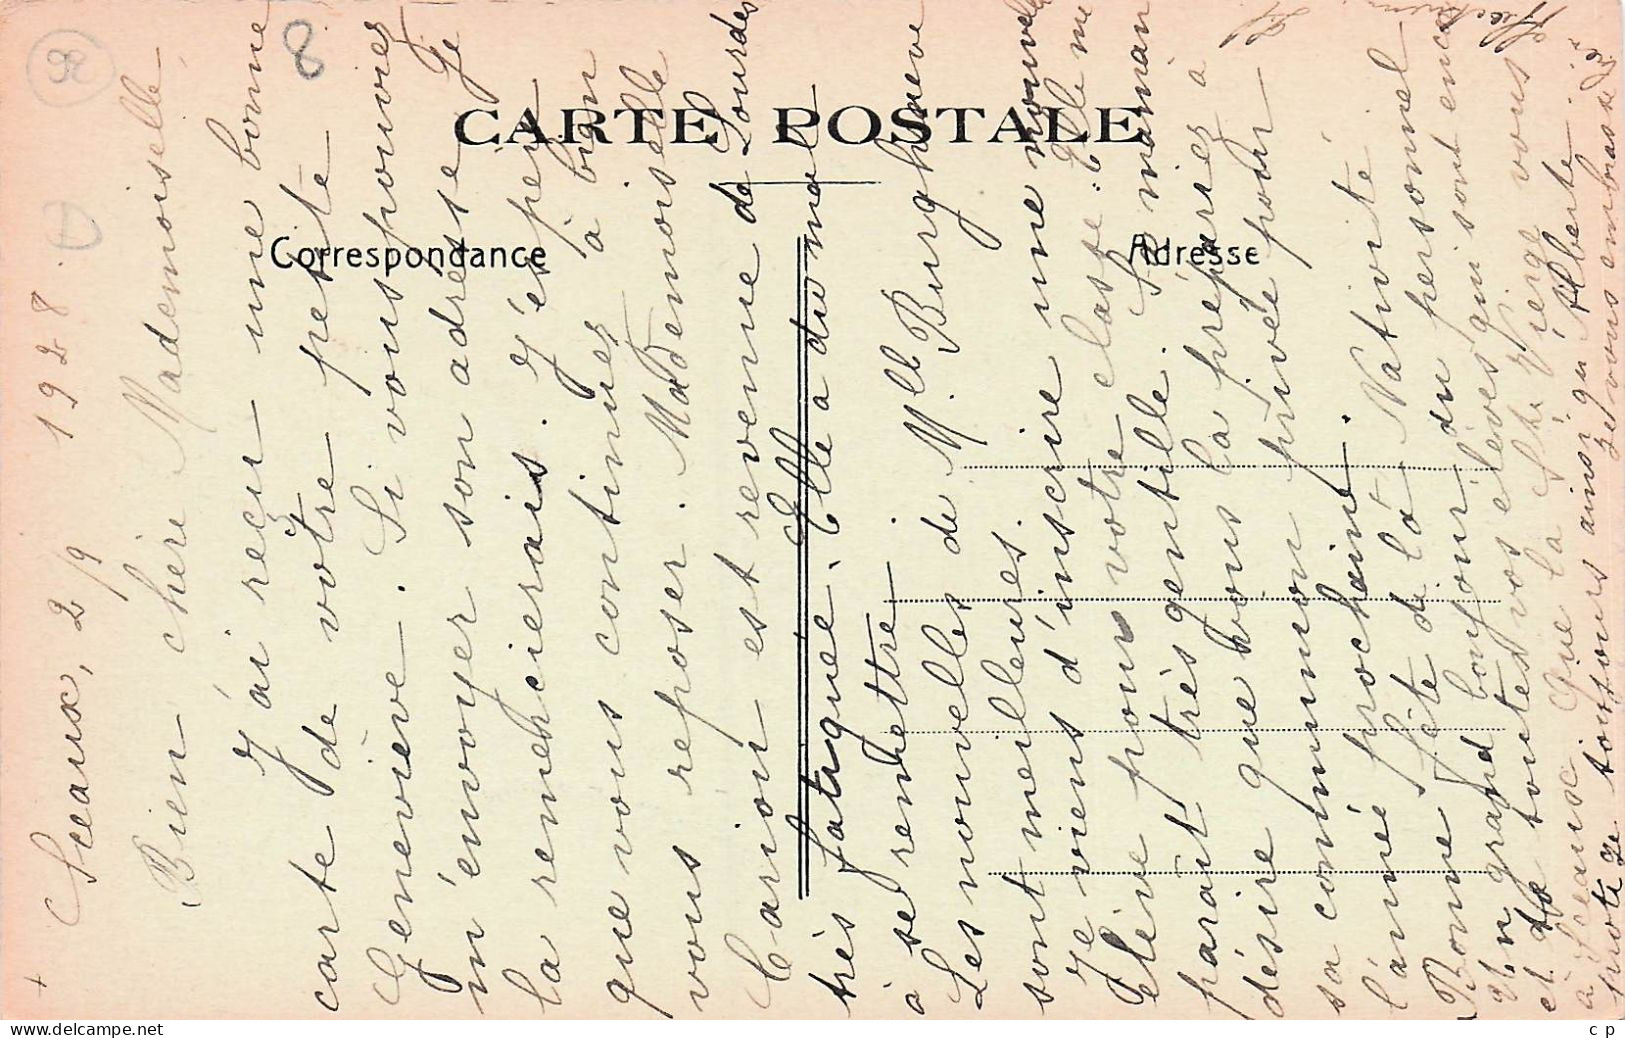 CARTE POSTALE
Correspondance
Adresse
92
8
D
+
Sceaux, 2/9 1928.
Bien chère Mademoiselle,
J'ai reçu une bonne
carte de votre petite
Geneviève. Si vous pouviez
m'envoyer son adresse Je
la remercierais. J'éspère
que vous continuez à bien
vous reposer. Mademoiselle
Cariou est revenue de Lourdes
très fatiguée. Elle a du mal
à se remettre
Les nouvelles de Mlle Burghraeve
sont meilleures.
Je viens d'inscrire une nouvelle
élève pour votre classe. Elle me
parait très gentille. Sa maman
désire que vous la prépariez à
sa communion privée pour
l'année prochaine.
Bonne fête de la Nativité
Un grand bonjour du personnel
et de toutes vos élèves qui sont encore
à Sceaux. Que la Ste Vierge vous
toujours ainsi qu'Alberte.
Je vous embrasse
Affectueuse
c p